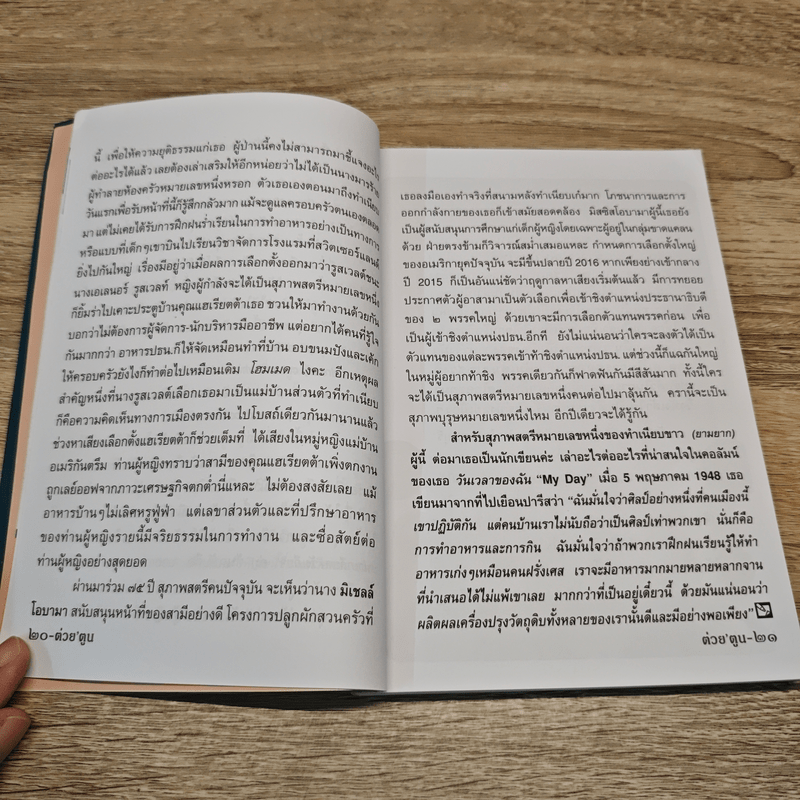 นี้ เพื่อให้ความยุติธรรมแก่เธอ ผู้ป่านนี้คงไม่สามารถมาชี้แจงอะไร
ต่ออะไรได้แล้ว เลยต้องเล่าเสริมให้อีกหน่อยว่าไม่ได้เป็นนางมารร้าย
ผู้ทำลายห้องครัวหมายเลขหนึ่งหรอก ตัวเธอเองตอนมาถึงทำเนียบ
วันแรกเพื่อรับหน้าที่นี้ก็รู้สึกกลัวมาก แม้จะดูแลครอบครัวตนเองตลอด
มา แต่ไม่เคยได้รับการฝึกฝนร่ำเรียนในการทำอาหารอย่างเป็นทางการ
หรือแบบที่เด็กๆเขาบินไปเรียนวิชาจัดการโรงแรมที่สวิตเซอร์แลนด์
ยิ่งไปกันใหญ่ เรื่องมีอยู่ว่าเมื่อผลการเลือกตั้งออกมาว่ารูสเวลต์ชนะ
นางเอเลนอร์ รูสเวลท์ หญิงผู้กำลังจะได้เป็นสุภาพสตรีหมายเลขหนึ่ง
ก็ยิ้มร่าไปเคาะประตูบ้านคุณแฮเรียตต้าเธอ ชวนให้มาทำงานด้วยกัน
บอกว่าไม่ต้องการผู้จัดการ-นักบริหารมืออาชีพ แต่อยากได้คนที่รู้ใจ
กันมากกว่า อาหารปธน.ก็ให้จัดเหมือนทำที่บ้าน อบขนมปังและเค้ก
ให้ครอบครัวยังไงก็ทำต่อไปเหมือนเดิม โฮมเมด ไงคะ อีกเหตุผล
สำคัญหนึ่งที่นางรูสเวลต์เลือกเธอมาเป็นแม่บ้านส่วนตัวที่ทำเนียบ
ก็คือความคิดเห็นทางการเมืองตรงกัน ไปโบสถ์เดียวกันมานานแล้ว
ช่วงหาเสียงเลือกตั้งแฮเรียตต้าก็ช่วยเต็มที่ ได้เสียงในหมู่หญิงแม่บ้าน
อเมริกันตรึม ท่านผู้หญิงทราบว่าสามีของคุณแฮเรียตต้าเพิ่งตกงาน
ถูกเลย์ออฟจากภาวะเศรษฐกิจตกต่ำนี่แหละ ไม่ต้องสงสัยเลย แม้
อาหารบ้านๆไม่เลิศหรูฟู่ฟ่า แต่เลขาส่วนตัวและที่ปรึกษาอาหาร
ของท่านผู้หญิงรายนี้มีจริยธรรมในการทำงาน และซื่อสัตย์ต่อ
ท่านผู้หญิงอย่างสุดยอด
ผ่านมาร่วม ๗๕ ปี สุภาพสตรีคนปัจจุบัน จะเห็นว่านาง มิเชลล์
โอบามา สนับสนุนหน้าที่ของสามีอย่างดี โครงการปลูกผักสวนครัวที่
๒๐-ต่วย'ตูน
เธอลงมือเองทำจริงที่สนามหลังทำเนียบเก๋มาก โภชนาการและการ
ออกกำลังกายของเธอก็เข้าสมัยสอดคล้อง มิสซิสโอบามาผู้นี้เธอยัง
เป็นผู้สนับสนุนการศึกษาแก่เด็กผู้หญิงโดยเฉพาะผู้อยู่ในกลุ่มขาดแคลน
ด้วย ฝ่ายตรงข้ามก็วิจารณ์สม่ำเสมอแหละ กำหนดการเลือกตั้งใหญ่
ของอเมริกายุคปัจจุบัน จะมีขึ้นปลายปี 2016 หากเพียงย่างเข้ากลาง
ปี 2015 ก็เป็นอันแน่ชัดว่าฤดูกาลหาเสียงเริ่มต้นแล้ว มีการทยอย
ประกาศตัวผู้อาสามาเป็นตัวเลือกเพื่อเข้าชิงตำแหน่งประธานาธิบดี
ของ ๒ พรรคใหญ่ ด้วยเขาจะมีการเลือกตัวแทนพรรคก่อน เพื่อ
เป็นผู้เข้าชิงตำแหน่งปธน.อีกที ยังไม่แน่นอนว่าใครจะลงตัวได้เป็น
ตัวแทนของแต่ละพรรคเข้าท้าชิงตำแหน่งปธน. แต่ช่วงนี้ก็แฉกันใหญ่
ในหมู่ผู้อยากท้าชิง พรรคเดียวกันก็ฟาดฟันกันมีสีสันมาก ทั้งนี้ใคร
จะได้เป็นสุภาพสตรีหมายเลขหนึ่งคนต่อไปมาลุ้นกัน ครานี้จะเป็น
สุภาพบุรุษหมายเลขหนึ่งไหม อีกปีเดียวจะได้รู้กัน
สำหรับสุภาพสตรีหมายเลขหนึ่งของทำเนียบขาว (ยามยาก)
ผู้นี้ ต่อมาเธอเป็นนักเขียนค่ะ เล่าอะไรต่ออะไรที่น่าสนใจในคอลัมน์
ของเธอ วันเวลาของฉัน “My Day” เมื่อ 5 พฤษภาคม 1948 เธอ
เขียนมาจากที่ไปเยือนปารีสว่า “ฉันมั่นใจว่าศิลป์อย่างหนึ่งที่คนเมืองนี้
เขาปฏิบัติกัน แต่คนบ้านเราไม่นับถือว่าเป็นศิลป์เท่าพวกเขา นั่นก็คือ
การทำอาหารและการกิน ฉันมั่นใจว่าถ้าพวกเราฝึกฝนเรียนรู้ให้ทำ
อาหารเก่งๆเหมือนคนฝรั่งเศส เราจะมีอาหารมากมายหลายหลากจาน
ที่นำเสนอได้ไม่แพ้เขาเลย มากกว่าที่เป็นอยู่เดี๋ยวนี้ ด้วยมันแน่นอนว่า
ผลิตผลเครื่องปรุงวัตถุดิบทั้งหลายของเรานั้นดีและมีอย่างพอเพียง”
ต่วย'ตูน-๒๑